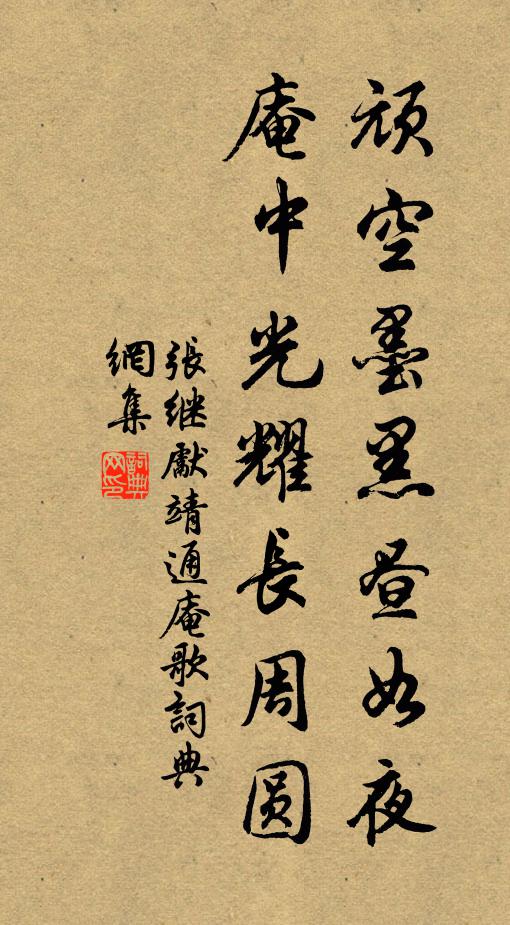 頑空墨黑昼如夜
庵中光耀長周圓
張继獻靖通庵歌詞典
網集
詞典网印